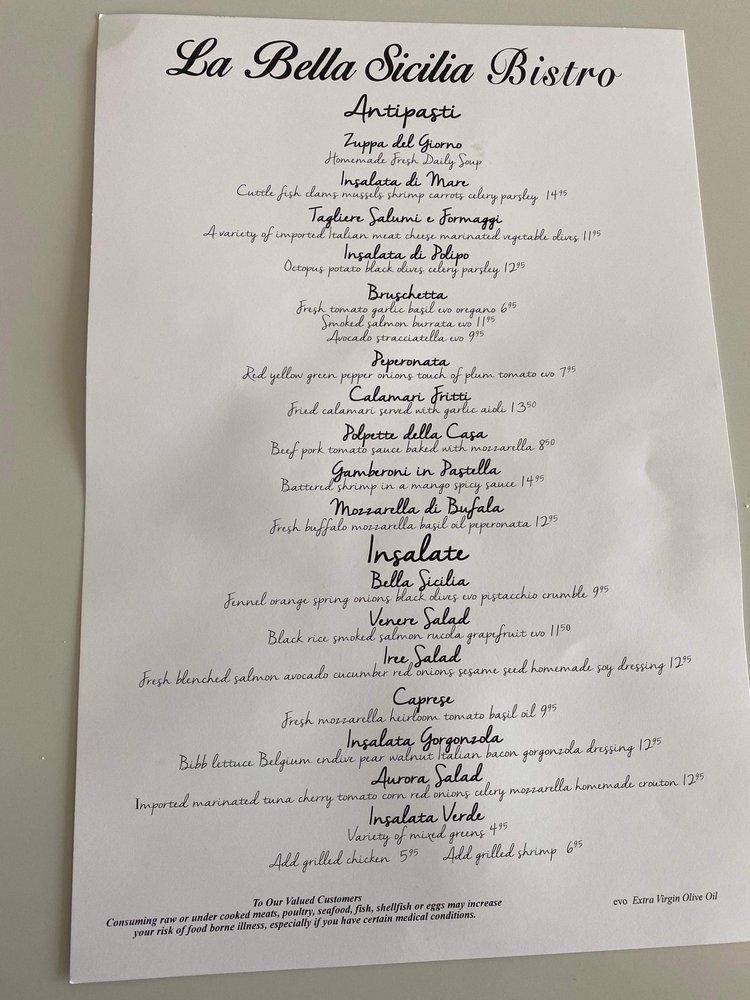 La Bella Sicilia Bistro
Antipasti
Zuppa del Giorno
Homemade Fresh Daily Soup
Insalata di Mare
Cuttle fish clams mussels shrimp carrots celery parsley 14⁹⁵
Tagliere Salumi e Formaggi
A variety of imported Italian meat cheese marinated vegetable olives 11⁹⁵
Insalata di Polipo
Octopus potato black olives celery parsley 12⁹⁵
Bruschetta
Fresh tomato garlic basil evo oregano 6⁹⁵
Smoked salmon burrata evo 11⁹⁵
Avocado stracciatella evo 9⁹⁵
Peperonata
Red yellow green pepper onions touch of plum tomato evo 7⁹⁵
Calamari Fritti
Fried calamari served with garlic aioli 13⁵⁰
Polpette della Casa
Beef pork tomato sauce baked with mozzarella 8⁵⁰
Gamberoni in Pastella
Battered shrimp in a mango spicy sauce 14⁹⁵
Mozzarella di Bufala
Fresh buffalo mozzarella basil oil peperonata 12⁹⁵
Insalate
Bella Sicilia
Fennel orange spring onions black olives evo pistacchio crumble 9⁹⁵
Venere Salad
Black rice smoked salmon rucola grapefruit evo 11⁵⁰
Iree Salad
Fresh blenched salmon avocado cucumber red onions sesame seed homemade soy dressing 12⁹⁵
Caprese
Fresh mozzarella heirloom tomato basil oil 9⁹⁵
Insalata Gorgonzola
Bibb lettuce Belgium endive pear walnut Italian bacon gorgonzola dressing 12⁹⁵
Aurora Salad
Imported marinated tuna cherry tomato corn red onions celery mozzarella homemade crouton 12⁹⁵
Insalata Verde
Variety of mixed greens 4⁹⁵
Add grilled chicken 5⁹⁵ Add grilled shrimp 6⁹⁵
To Our Valued Customers
Consuming raw or under cooked meats, poultry, seafood, fish, shellfish or eggs may increase
your risk of food borne illness, especially if you have certain medical conditions.
evo Extra Virgin Olive Oil